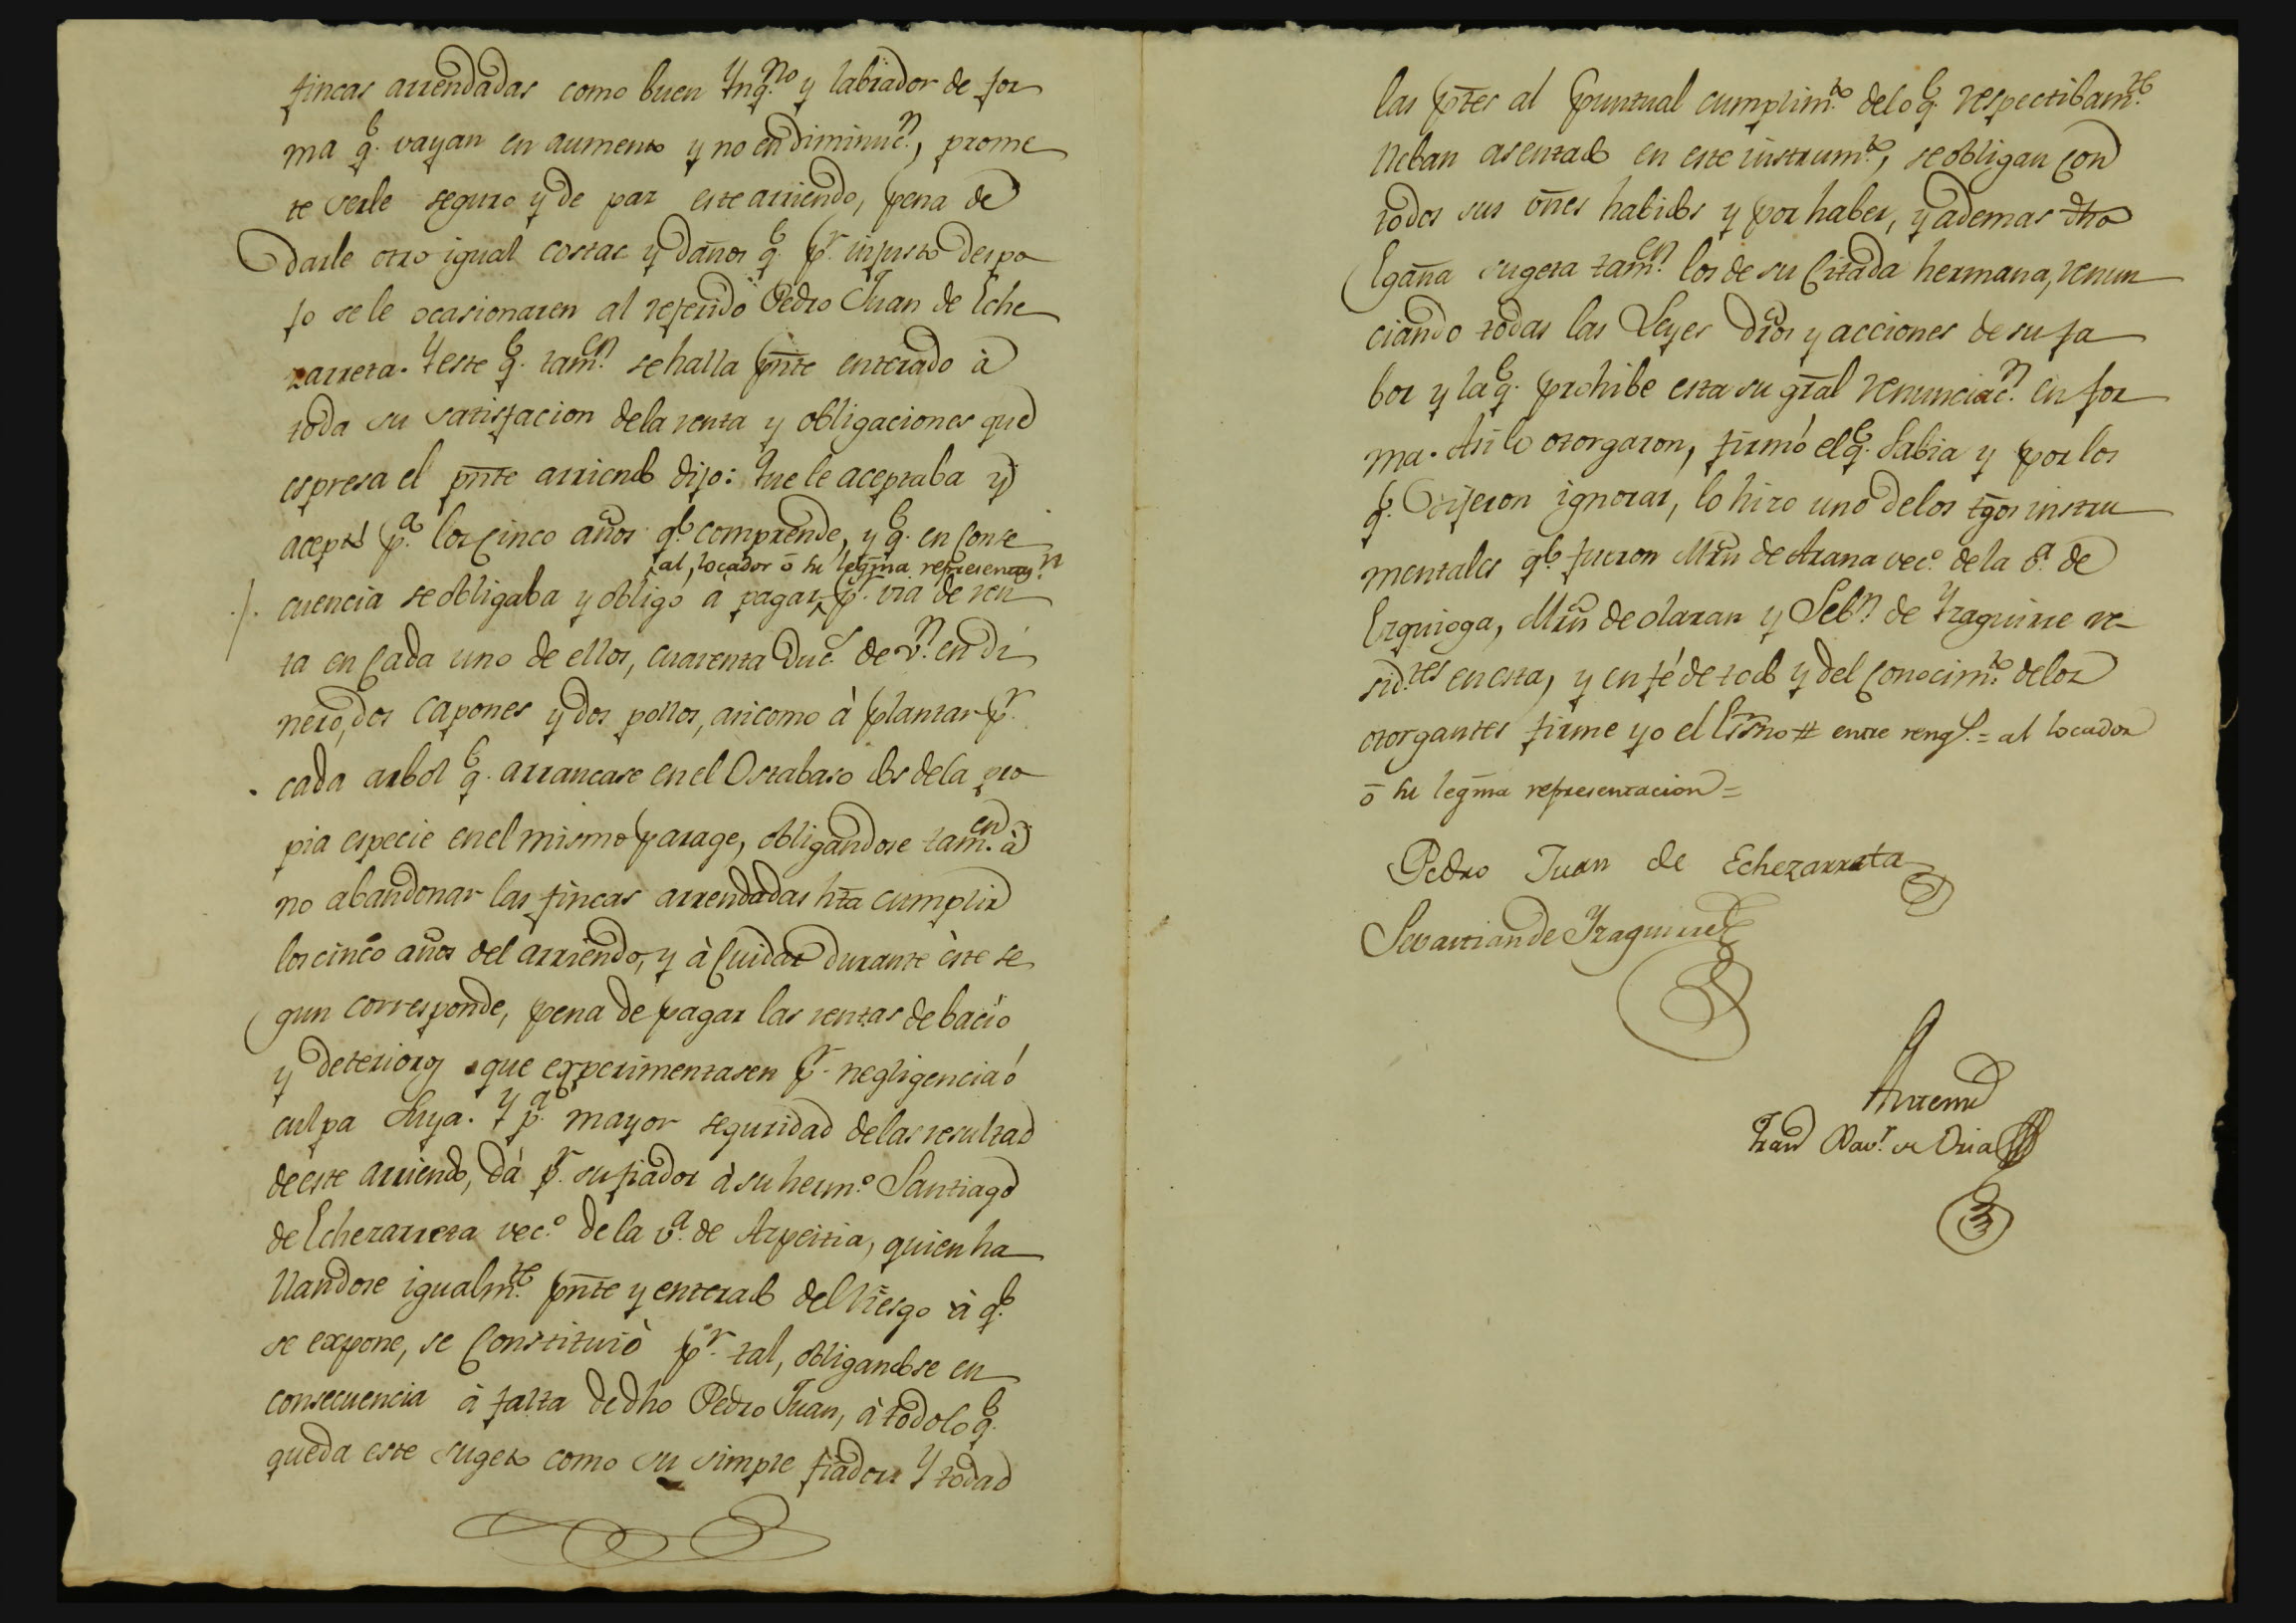 fincas arrendadas como buen Ynq.no y labrador de for
ma q.e vayan en aumento y no en diminuc.n, prome
te serle seguro y de paz este arriendo, pena de
darle otro igual costas y daños q.e p.r injusto despo
jo se le ocasionaren al referido Pedro Juan de Eche
zarreta. Y este q.e tam.en se halla pñte enterado à
toda su satisfacion dela renta y obligaciones que
espresa el pñte arriendo dijo: Que le aceptaba y
aceptó p.a los cinco años q.e comprende, y q.e en conse
al locador ō su legma representac.n
cuencia se obligaba y obligó à pagar, p.r via de ren
ta en cada uno de ellos, cuarenta duc.s de v.n en di
nero, dos capones y dos pollos, asi como à plantar p.r
cada arbol q.e arrancase en el Ostabaso dos dela pro
pia especie en el mismo parage, obligandose tam.en à
no abandonar las fincas arrendadas hta cumplir
los cinco años del arriendo, y à cuidar durante èste se
gun corresponde, pena de pagar las rentas de bacio
y deterioros que experimentasen p.r negligencia ó
culpa suya. Y p.a mayor seguridad delas resultas
de este arriendo, dá p.r su fiador à su herm.o Santiago
de Echezarreta vec.o de la v.a de Azpeitia, quien ha
llandose igualm.te pñte y enterado del riesgo à q.e
se expone, se constituiò p.r tal, obligandose en
consecuencia à falta de dho Pedro Juan, à todo lo q.e
queda este sugeto como su simple fiador. Y todas
las ptes al puntual cumplim.to delo q.e respectibam.te
lleban asentado en este instrum.to, se obligan con
todos sus bñes habidos y por haber, y ademas dho
Egaña sugeta tam.en los de su citada hermana, renun
ciando todas las Leyes dros y acciones de su fa
bor y la q.e prohibe esta su gral renunciac.n en for
ma. Asi lo otorgaron, firmó el q.e sabia y por los
q.e dijeron ignorar, lo hizo uno delos tgos instru
mentales q.e fueron Mrn de Arana vec.o de la v.a de
Ezquioga, Mrn de olaran y Seb.n de Yzaguirre re
sid.tes en esta, y en fé de todo y del conocim.to delos
otorgantes firme yo el Esno # entre reng.s = al locador
ō su legma representacion =
Pedro Juan de Echezarreta
Sevastian de Yzaguirre
Antemi
Fran.co Xav.r de Oria